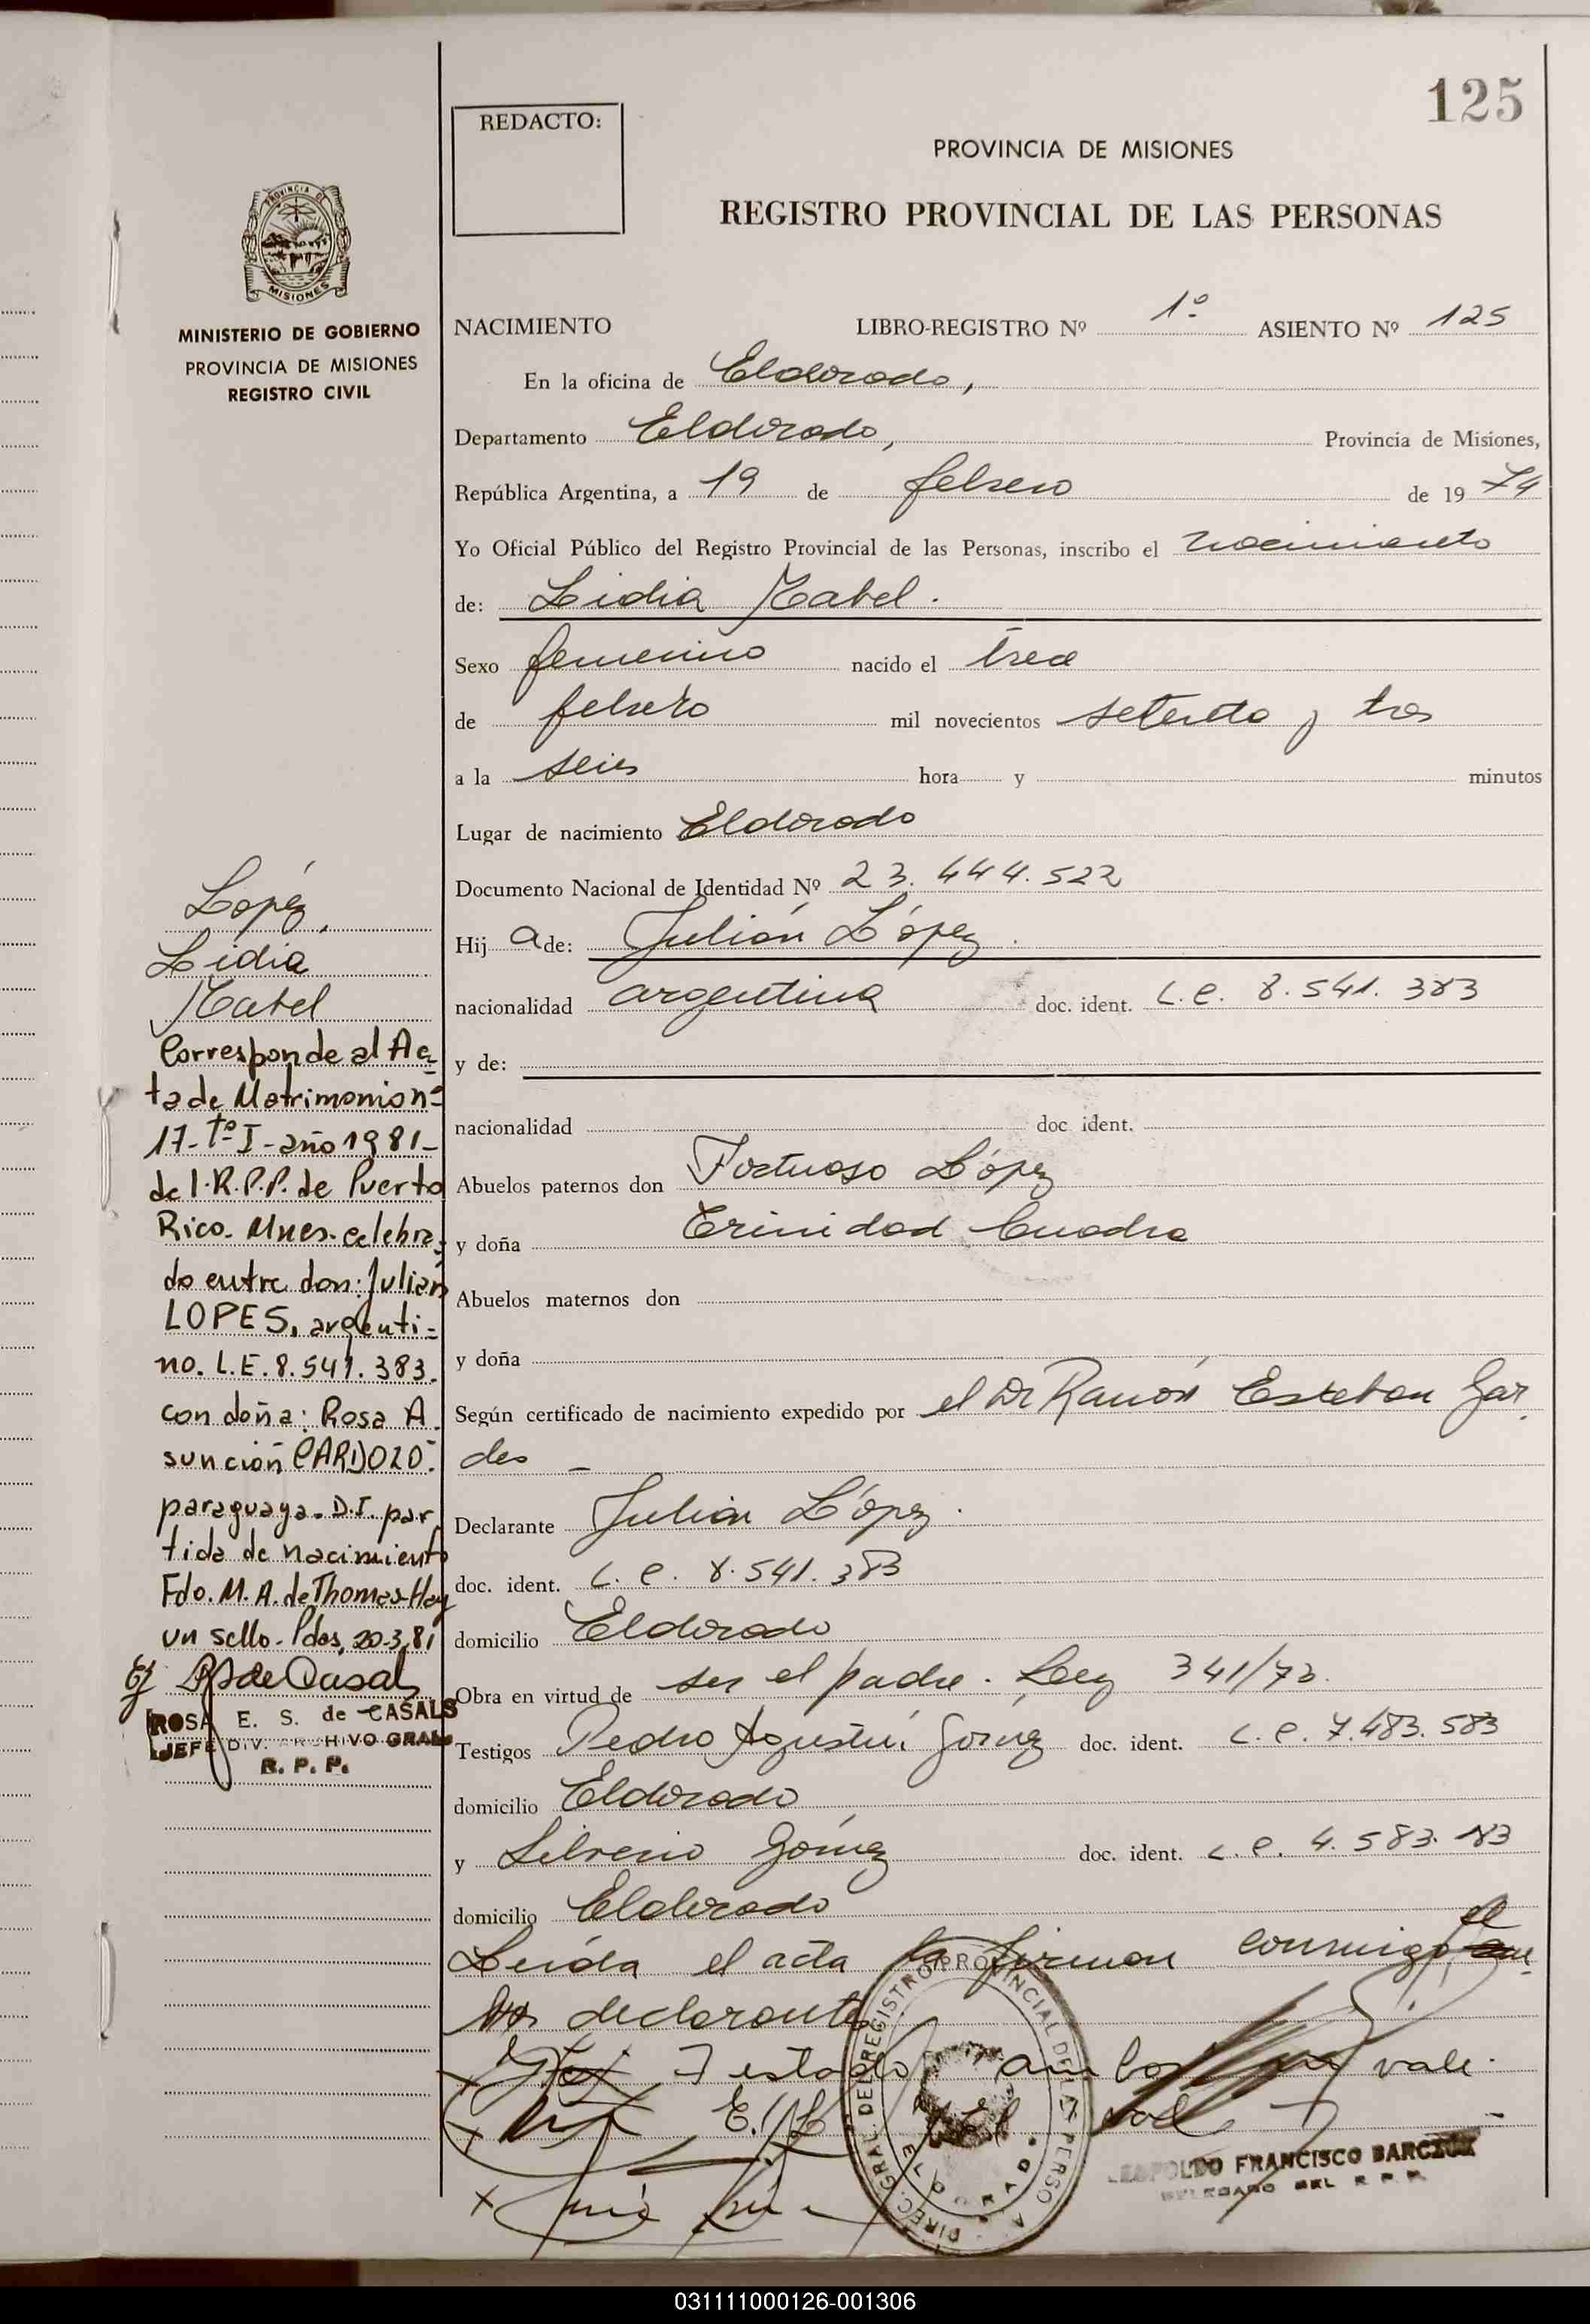 125
REDACTO:
PROVINCIA DE MISIONES
REGISTRO PROVINCIAL DE LAS PERSONAS
PROVINCIA DE
MISIONES
MINISTERIO DE GOBIERNO
PROVINCIA DE MISIONES
REGISTRO CIVIL
NACIMIENTO LIBRO-REGISTRO Nº 1º ASIENTO Nº 125
En la oficina de Eldorado,
Departamento Eldorado, Provincia de Misiones,
República Argentina, a 19 de febrero de 19 74
Yo Oficial Público del Registro Provincial de las Personas, inscribo el nacimiento
de: Lidia Mabel.
Sexo femenino nacido el trece
de febrero mil novecientos setenta y tres
a la seis hora y minutos
Lugar de nacimiento Eldorado
Documento Nacional de Identidad Nº 23.444.522
Hij a de: Julián López.
nacionalidad argentina doc. ident. L.E. 8.541.383
y de:
nacionalidad doc ident.
Abuelos paternos don Fortuoso López
y doña Trinidad Cuadra
Abuelos maternos don
y doña
Según certificado de nacimiento expedido por el Dr Ramón Esteban Gar
des
Declarante Julián López.
doc. ident. L.E. 8.541.383
domicilio Eldorado
Obra en virtud de ser el padre. Ley 341/73.
Testigos Pedro Agustín Gómez doc. ident. L.E. 7.483.583
domicilio Eldorado
y Silverio Gómez doc. ident. L.E. 4.583.183
domicilio Eldorado
Leída el acta la firman conmigo, el
declarante
Testado vale.
López,
Lidia
Mabel
Corresponde al Ac-
ta de Matrimonio nº
17-Tº I-año 1981-
del R.P.P. de Puerto
Rico. Mnes. celebra-
do entre don: Julian
LOPES, argenti-
no. L.E. 8.541.383.
con doña: Rosa A
sunción CARDOZO-
paraguaya. D.I. par
tida de nacimiento
Fdo. M. A. de Thomas-Hay
un sello. Pdas, 20-3-81
ROSA E. S. de CASALS
JEFE DIV. ARCHIVO GRAL
R. P. P.
DIREC. GRAL. DEL REGISTRO PROVINCIAL DE LA PERSONA
ELDORADO
LEOPOLDO FRANCISCO BARCZUK
DELEGADO DEL R. P. P.
031111000126-001306